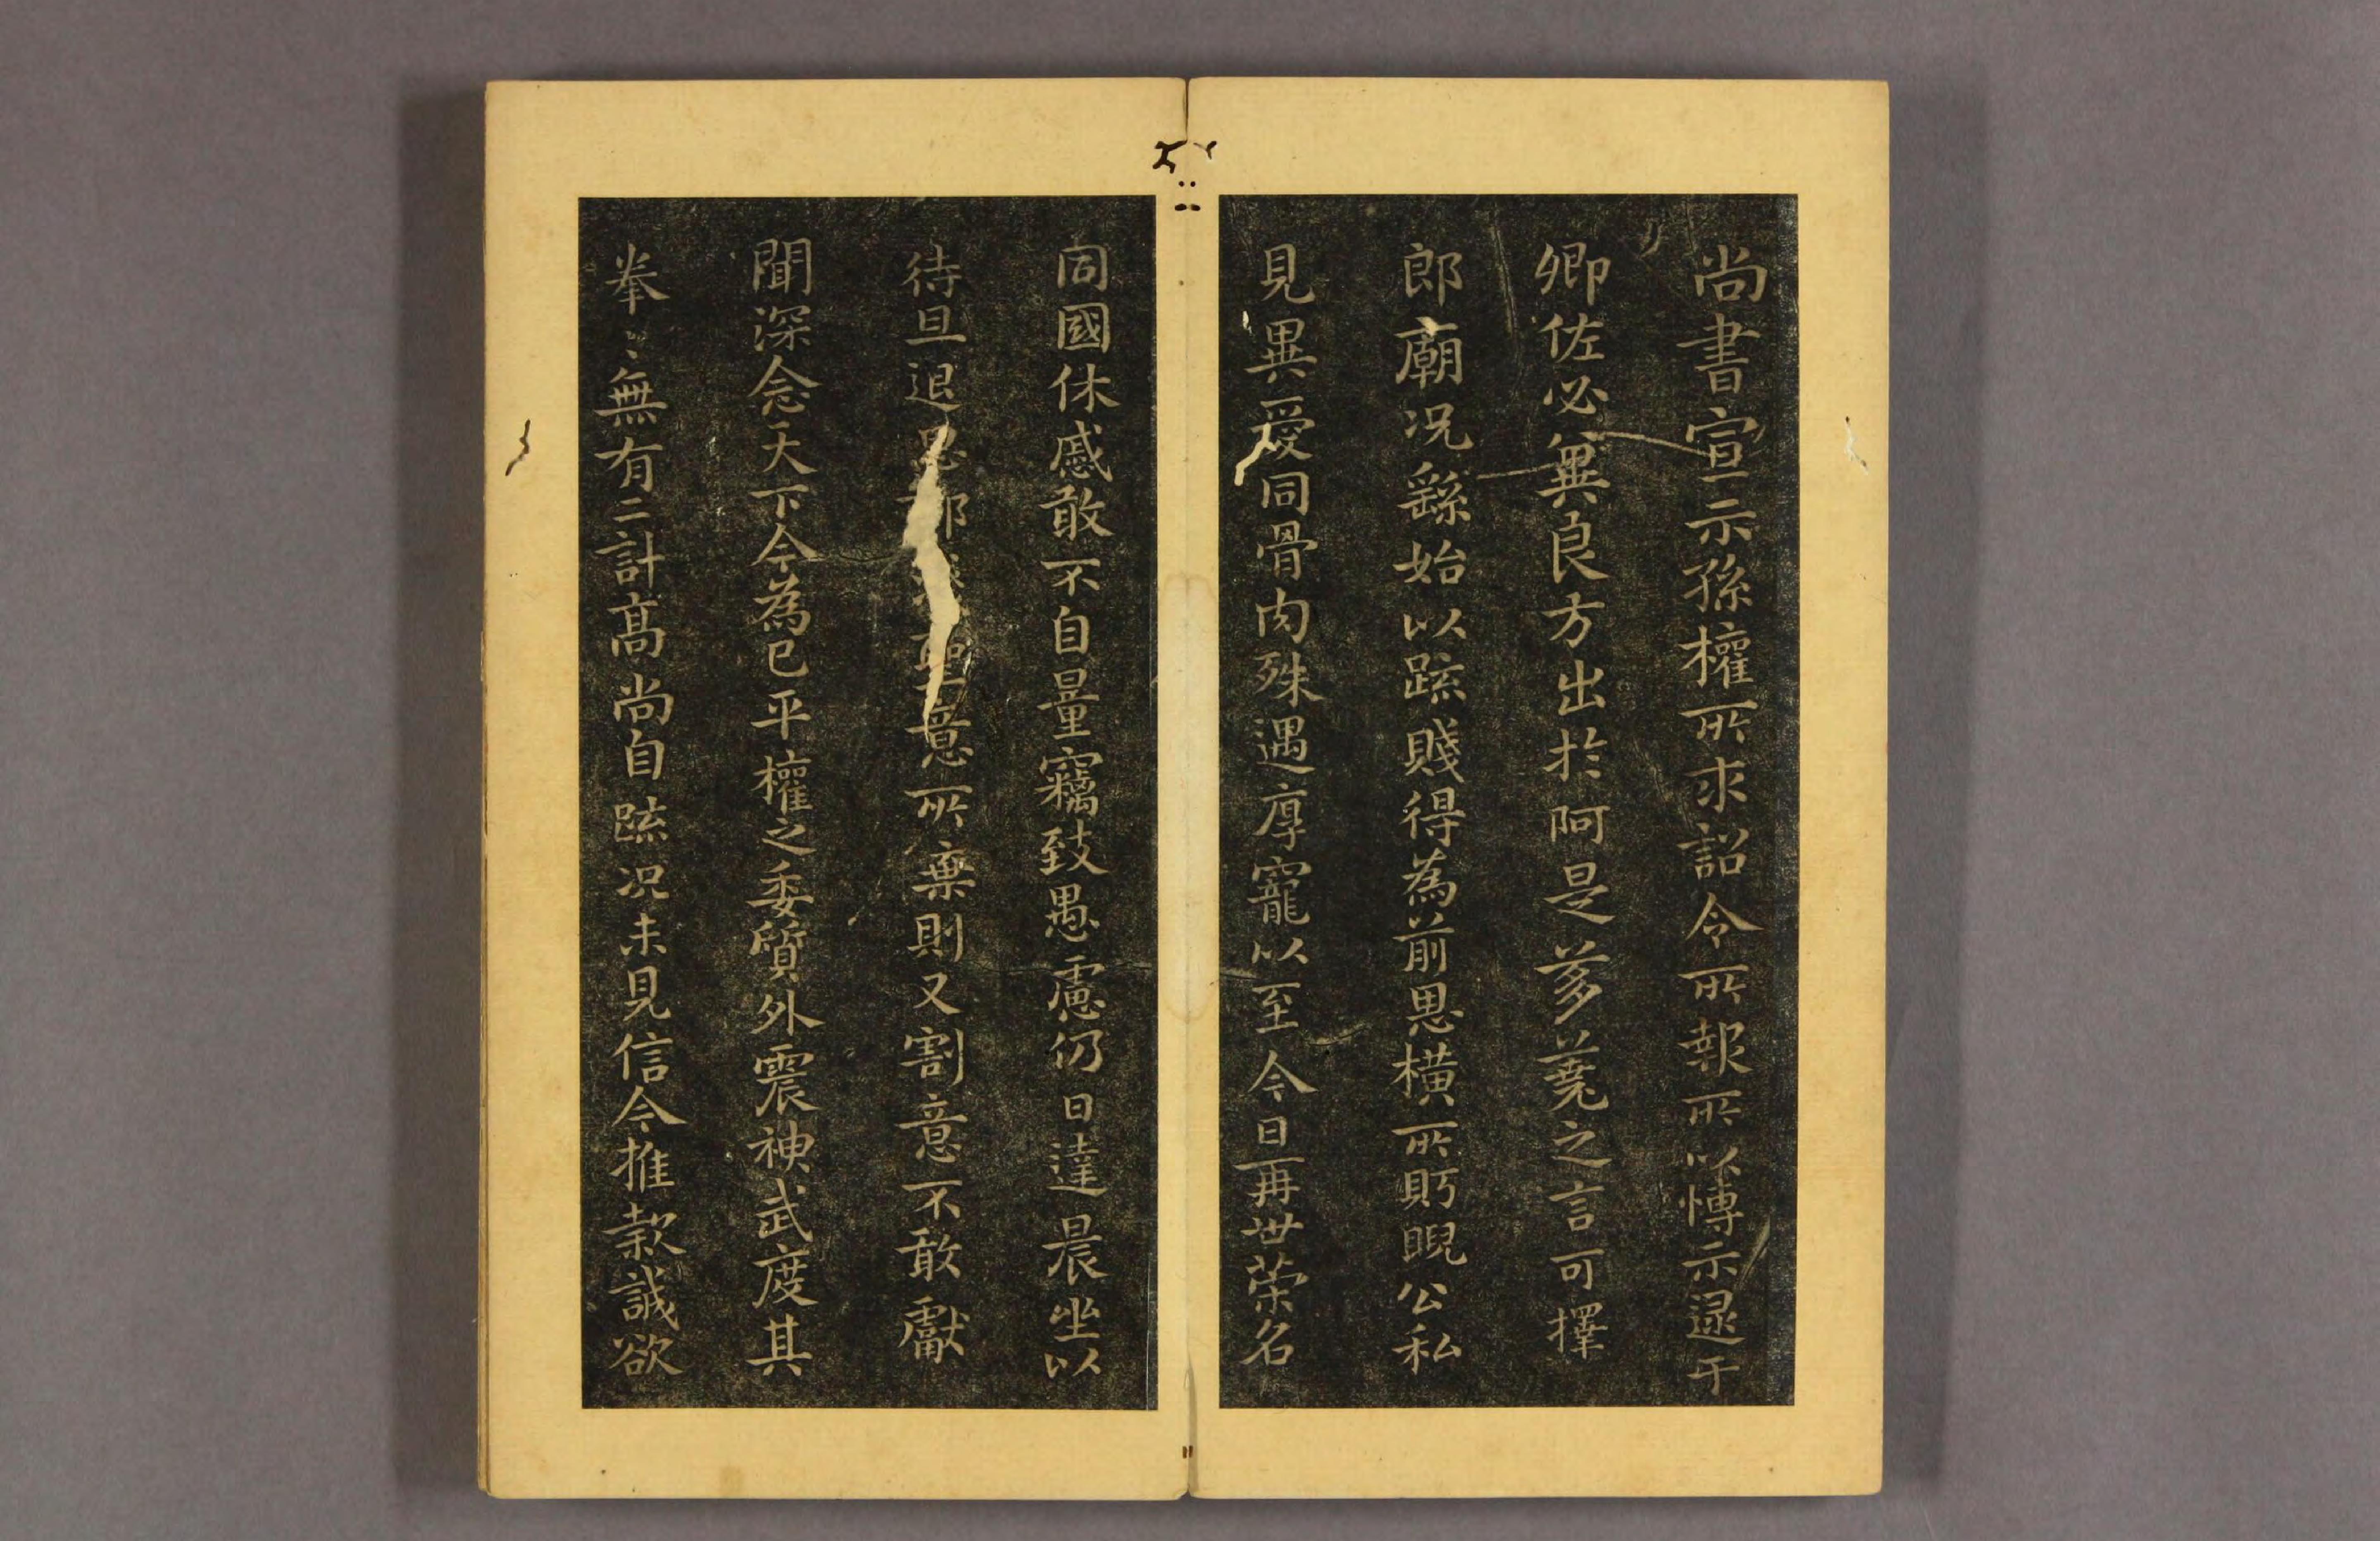 尚書宣示孫權所求詔令所報所以愽示逯于
卿佐必兾良方出於阿是芻蕘之言可擇
郎廟況繇始以疏賤得為前恩橫所眄睨公私
見異愛同骨肉殊遇厚寵以至今日再世荣名
同國休慼敢不自量竊致愚慮仍日達晨坐以
待旦退思鄙 聖意所棄則又割意不敢獻
聞深念天下今為已平權之委質外震神武度其
拳〻無有二計高尚自疏況未見信今推款誠欲